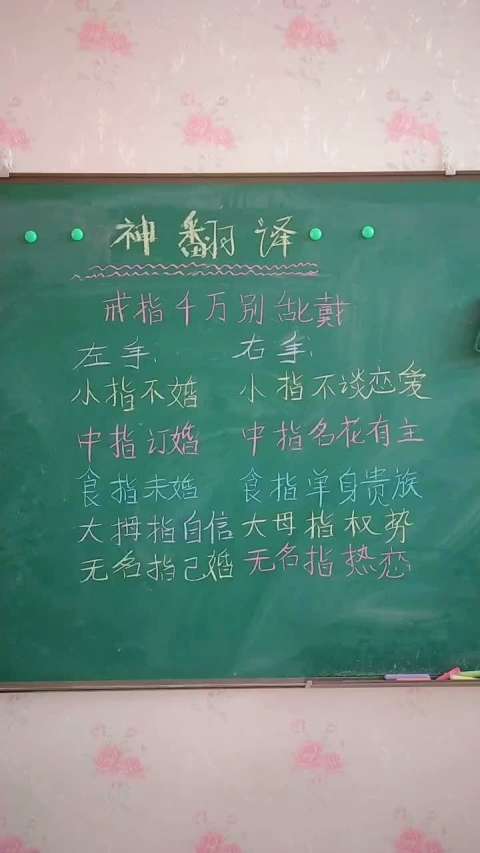 神翻译
戒指千万别乱戴
左手: 右手:
小指不婚 小指不谈恋爱
中指订婚 中指名花有主
食指未婚 食指单身贵族
大拇指自信 大母指权势
无名指己婚 无名指热恋